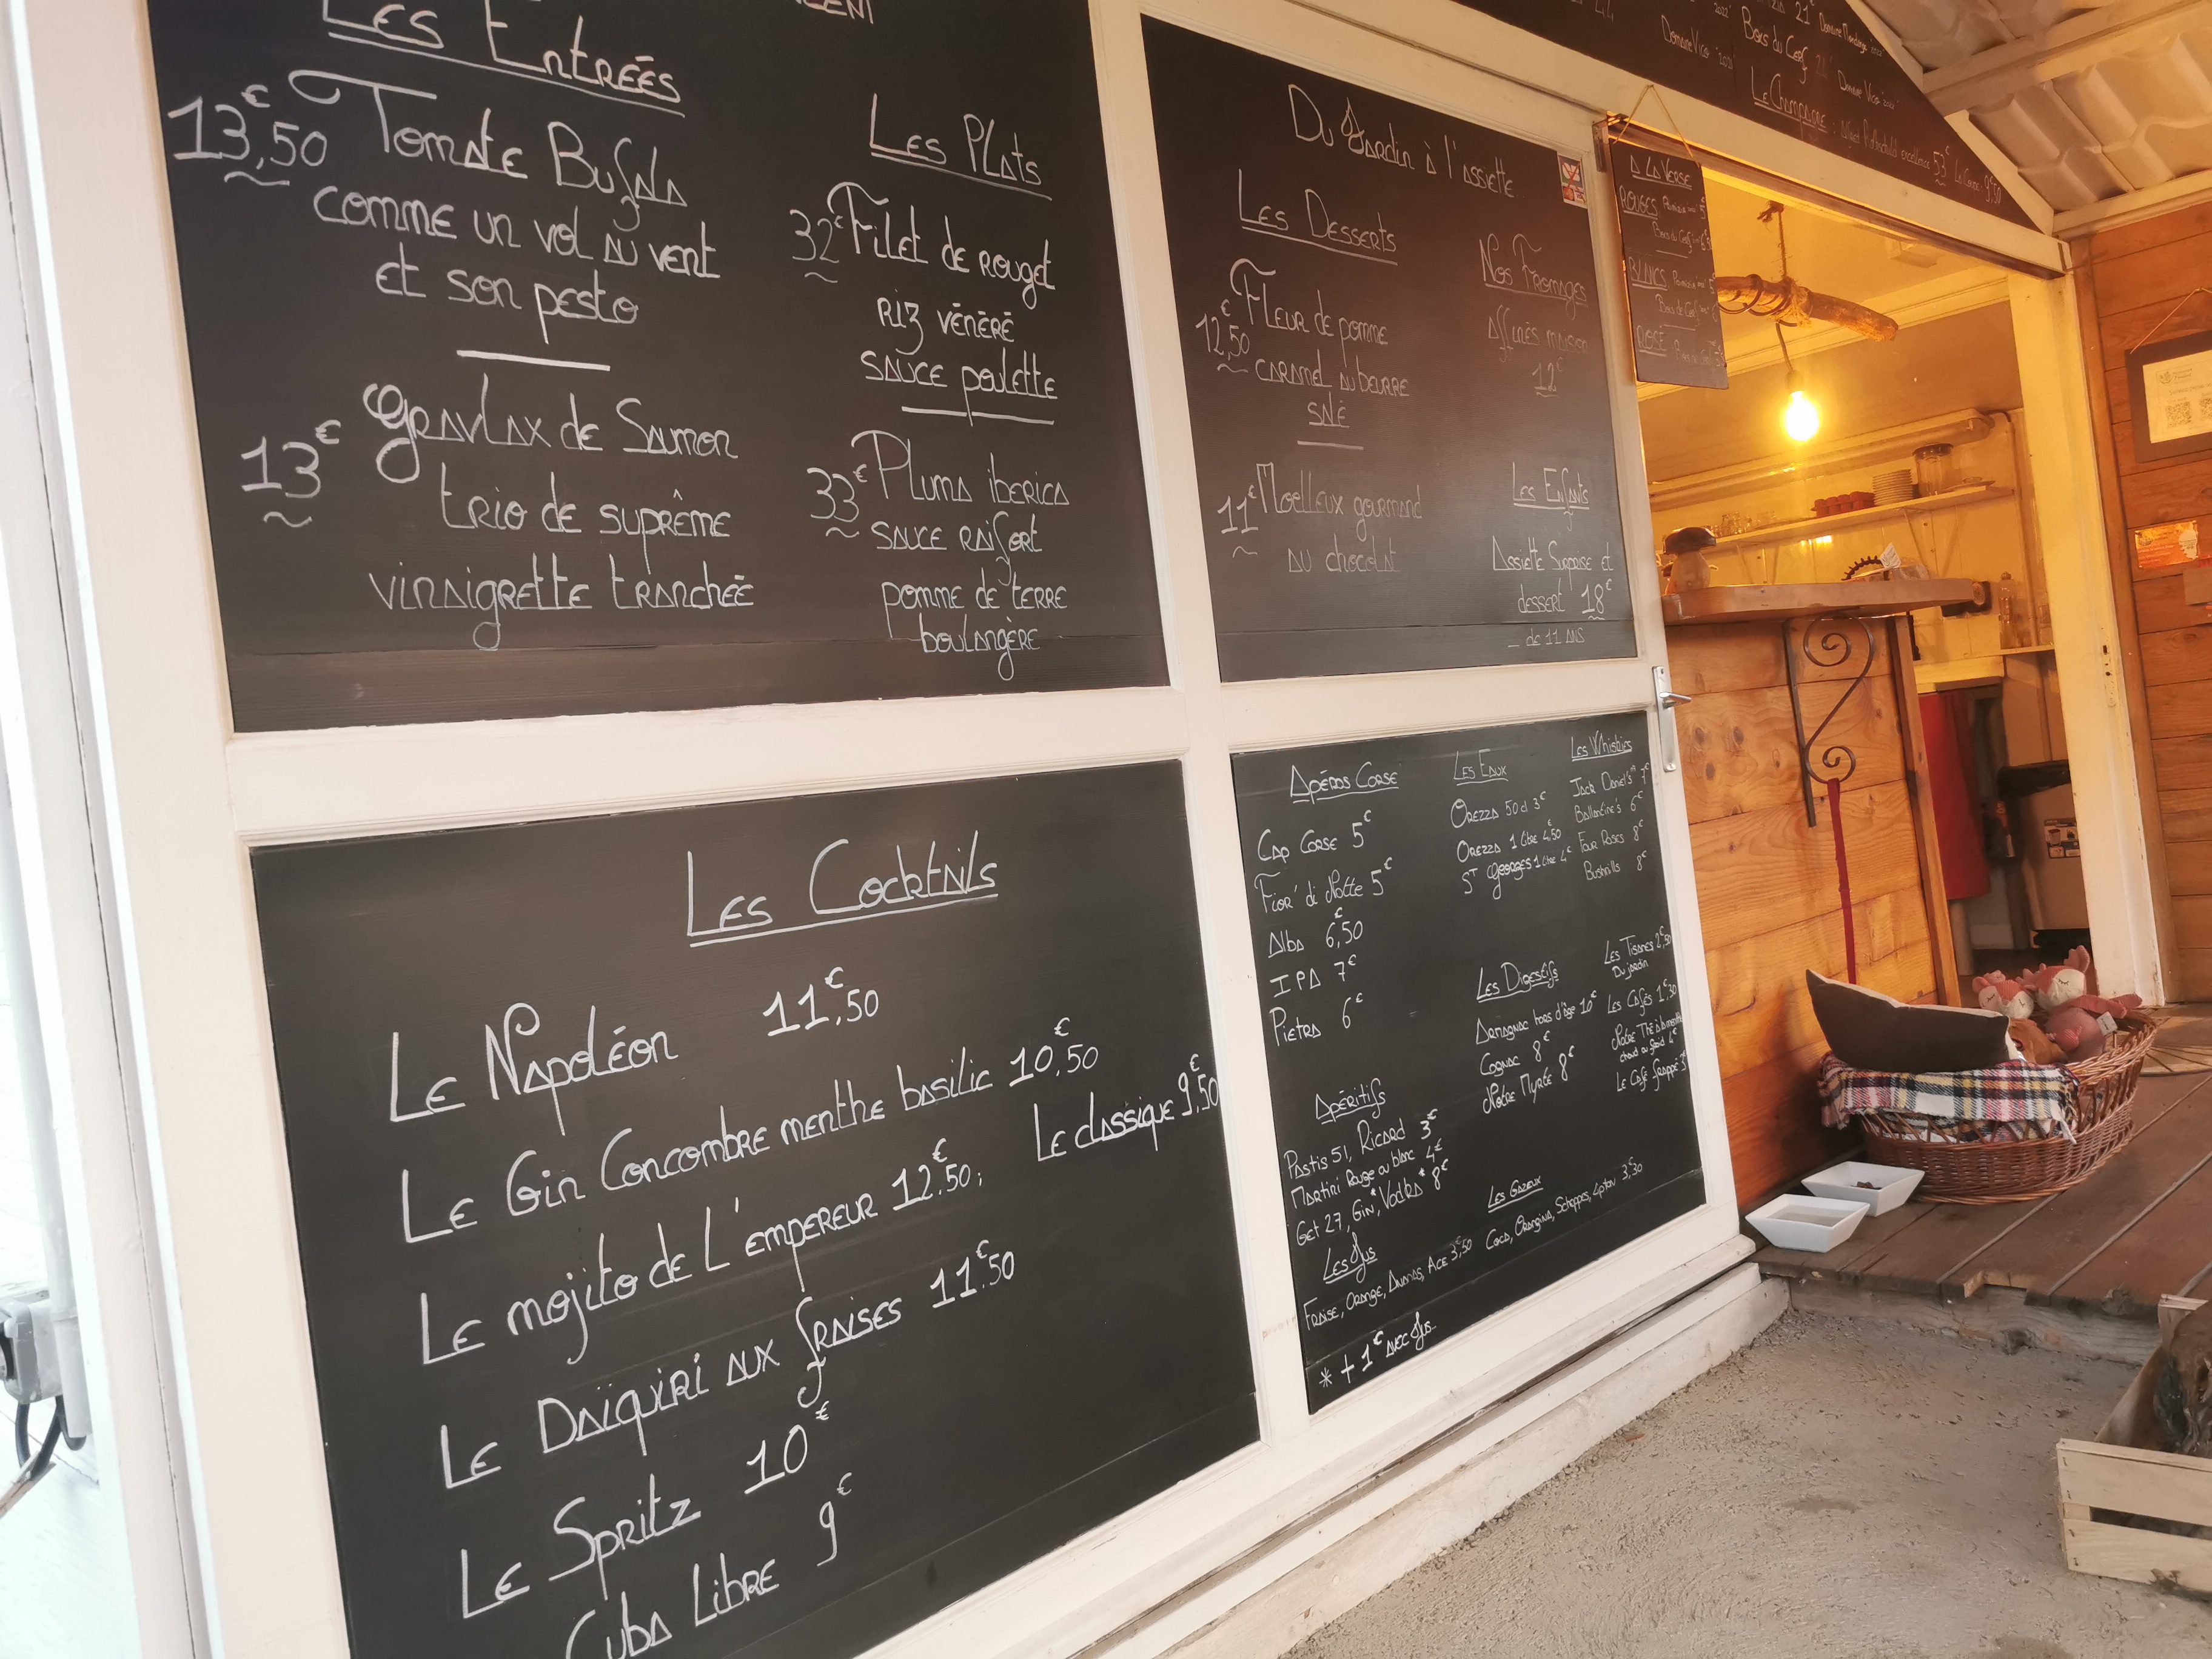 Les Entrées
13,50€ Tomate Bufala
comme un vol au vent
et son pesto
13€ Gravlax de Saumon
trio de suprême
vinaigrette tranchée
Les Plats
32€ Filet de rouget
riz vénéré
sauce poulette
33€ Pluma iberica
sauce raifort
pomme de terre
boulangère
Du Jardin à l'assiette
Les Desserts
12,50€ Fleur de pomme
caramel au beurre
salé
11€ Moelleux gourmand
au chocolat
Nos Fromages
affinés maison
12€
Les Enfants
Assiette Surprise et
dessert 18€
- de 11 ans
Bois du Cerf
Domaine Vico
Le Champagne : 53€ La Coupe 9,50
A LA VERSE
ROUGES
BLANCS
ROSÉ
Les Cocktails
Le Napoléon 11€,50
Le Gin Concombre menthe basilic 10€,50
Le mojito de l'empereur 12€.50; Le classique 9€,50
Le Daïquiri aux fraises 11€.50
Le Spritz 10€
Cuba Libre 9€
Apéros Corse
Cap Corse 5€
Fior' di Notte 5€
Alba 6€,50
IPA 7€
Pietra 6€
Apéritifs
Pastis 51, Ricard 3€
Martini Rouge ou blanc 4€
Get 27, Gin*, Vodka* 8€
Les Jus
Fraise, Orange, Ananas, Ace 3€,50
* + 1€ avec Jus
Les Eaux
Orezza 50 cl 3€
Orezza 1 Litre 4€,50
St Georges 1 Litre 4€
Les Digestifs
Armagnac hors d'âge 10€
Cognac 8€
Notre Myrte 8€
Les Gazeux
Coca, Orangina, Scheppes, 3€,30
Les Whiskies
Jack Daniel's* 7€
Ballantine's 6€
Four Roses 8€
Bushills 8€
Les Tisanes 2€,50
Du jardin
Les Cafés 1€,30
Notre Thé à la menthe
chaud ou froid 4€
Le Café frappé 3€